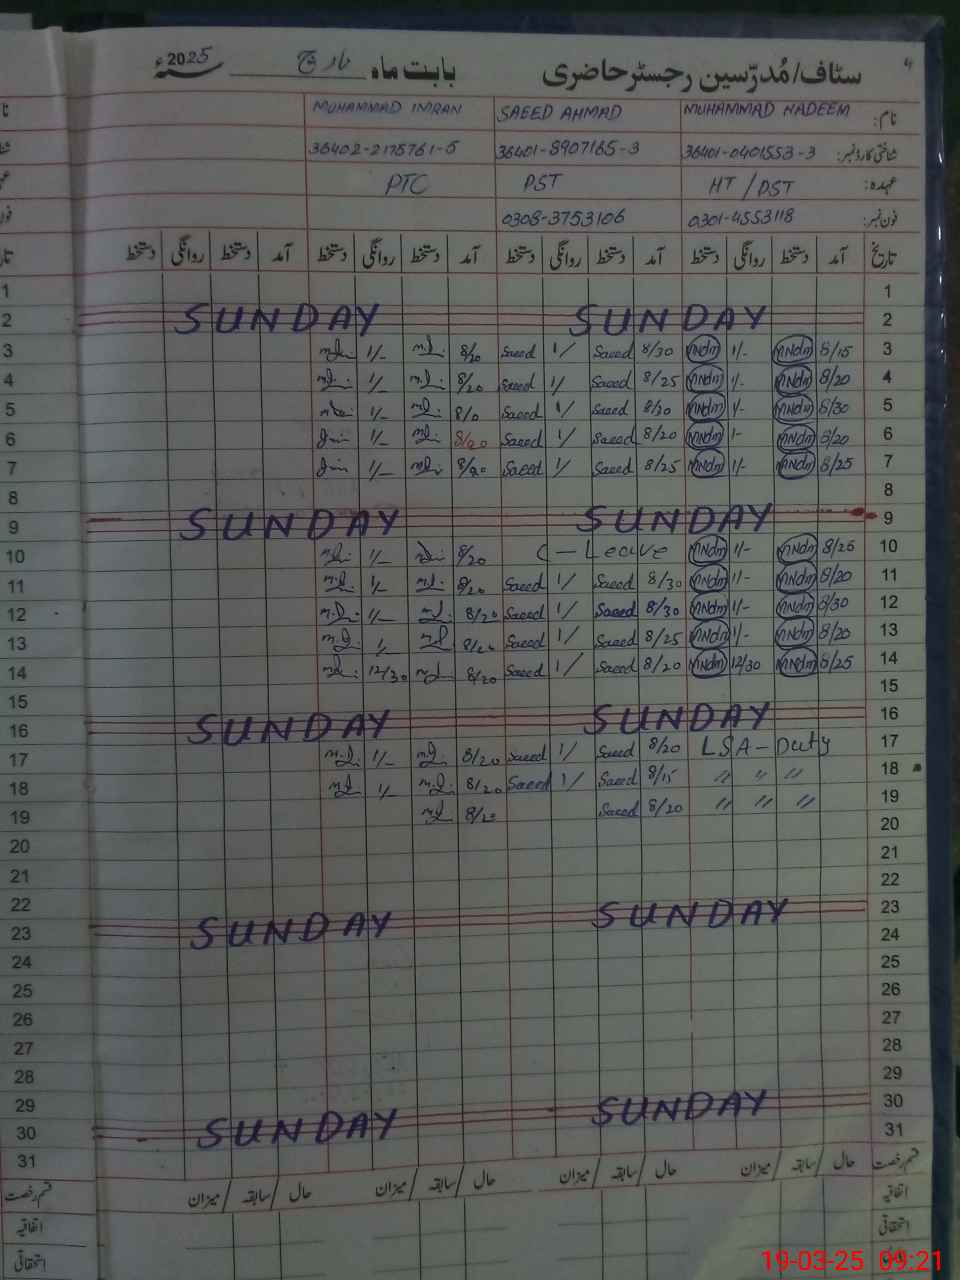 سٹاف/مُدرّسین رجسٹر حاضری بابت ماہ مارچ 2025ء
نام: MUHAMMAD NADEEM SAEED AHMAD MUHAMMAD IMRAN
شناختی کارڈ نمبر: 36401-0401553-3 36401-8907165-3 36402-2175761-5
عہدہ: HT / PST PST PTC
فون نمبر: 0301-4553118 0308-3753106
تاریخ آمد دستخط روانگی دستخط آمد دستخط روانگی دستخط آمد دستخط روانگی دستخط آمد دستخط روانگی دستخط
1 1
2 SUNDAY SUNDAY 2
3 8/15 MNdm 1/- MNdm 8/30 Saeed 1/ Saeed 8/20 1/- 3
4 8/20 MNdm 1/- MNdm 8/25 Saeed 1/ Saeed 8/20 1/- 4
5 8/30 MNdm 1/- MNdm 8/20 Saeed 1/ Saeed 1/- 5
6 8/20 MNdm 1- MNdm 8/20 Saeed 1/ Saeed 1/- 6
7 8/25 MNdm 1/- MNdm 8/25 Saeed 1/ Saeed 1/- 7
8 8
9 SUNDAY SUNDAY 9
10 8/25 MNdm 1/- MNdm C-Leave 8/20 1/- 10
11 8/20 MNdm 1/- MNdm 8/30 Saeed 1/ Saeed 8/20 1/- 11
12 8/30 MNdm 1/- MNdm 8/30 Saeed 1/ Saeed 8/20 1/- 12
13 8/20 MNdm 1/- MNdm 8/25 Saeed 1/ Saeed 13
14 8/25 MNdm 12/30 MNdm 8/20 Saeed 1/ Saeed 8/20 12/30 14
15 15
16 SUNDAY SUNDAY 16
17 LSA-Duty 8/20 Saeed 1/ Saeed 8/20 1/- 17
18 " " " 8/15 Saeed 1/ Saeed 8/20 1/- 18
19 " " " 8/20 Saeed 8/20 19
20 20
21 21
22 22
23 SUNDAY SUNDAY 23
24 24
25 25
26 26
27 27
28 28
29 29
30 SUNDAY SUNDAY 30
31 31
قسم رخصت حال / سابقہ / میزان حال / سابقہ / میزان حال / سابقہ / میزان حال / سابقہ / میزان قسم رخصت
اتفاقیہ اتفاقیہ
استحقاقی استحقاقی
19-03-25 09:21